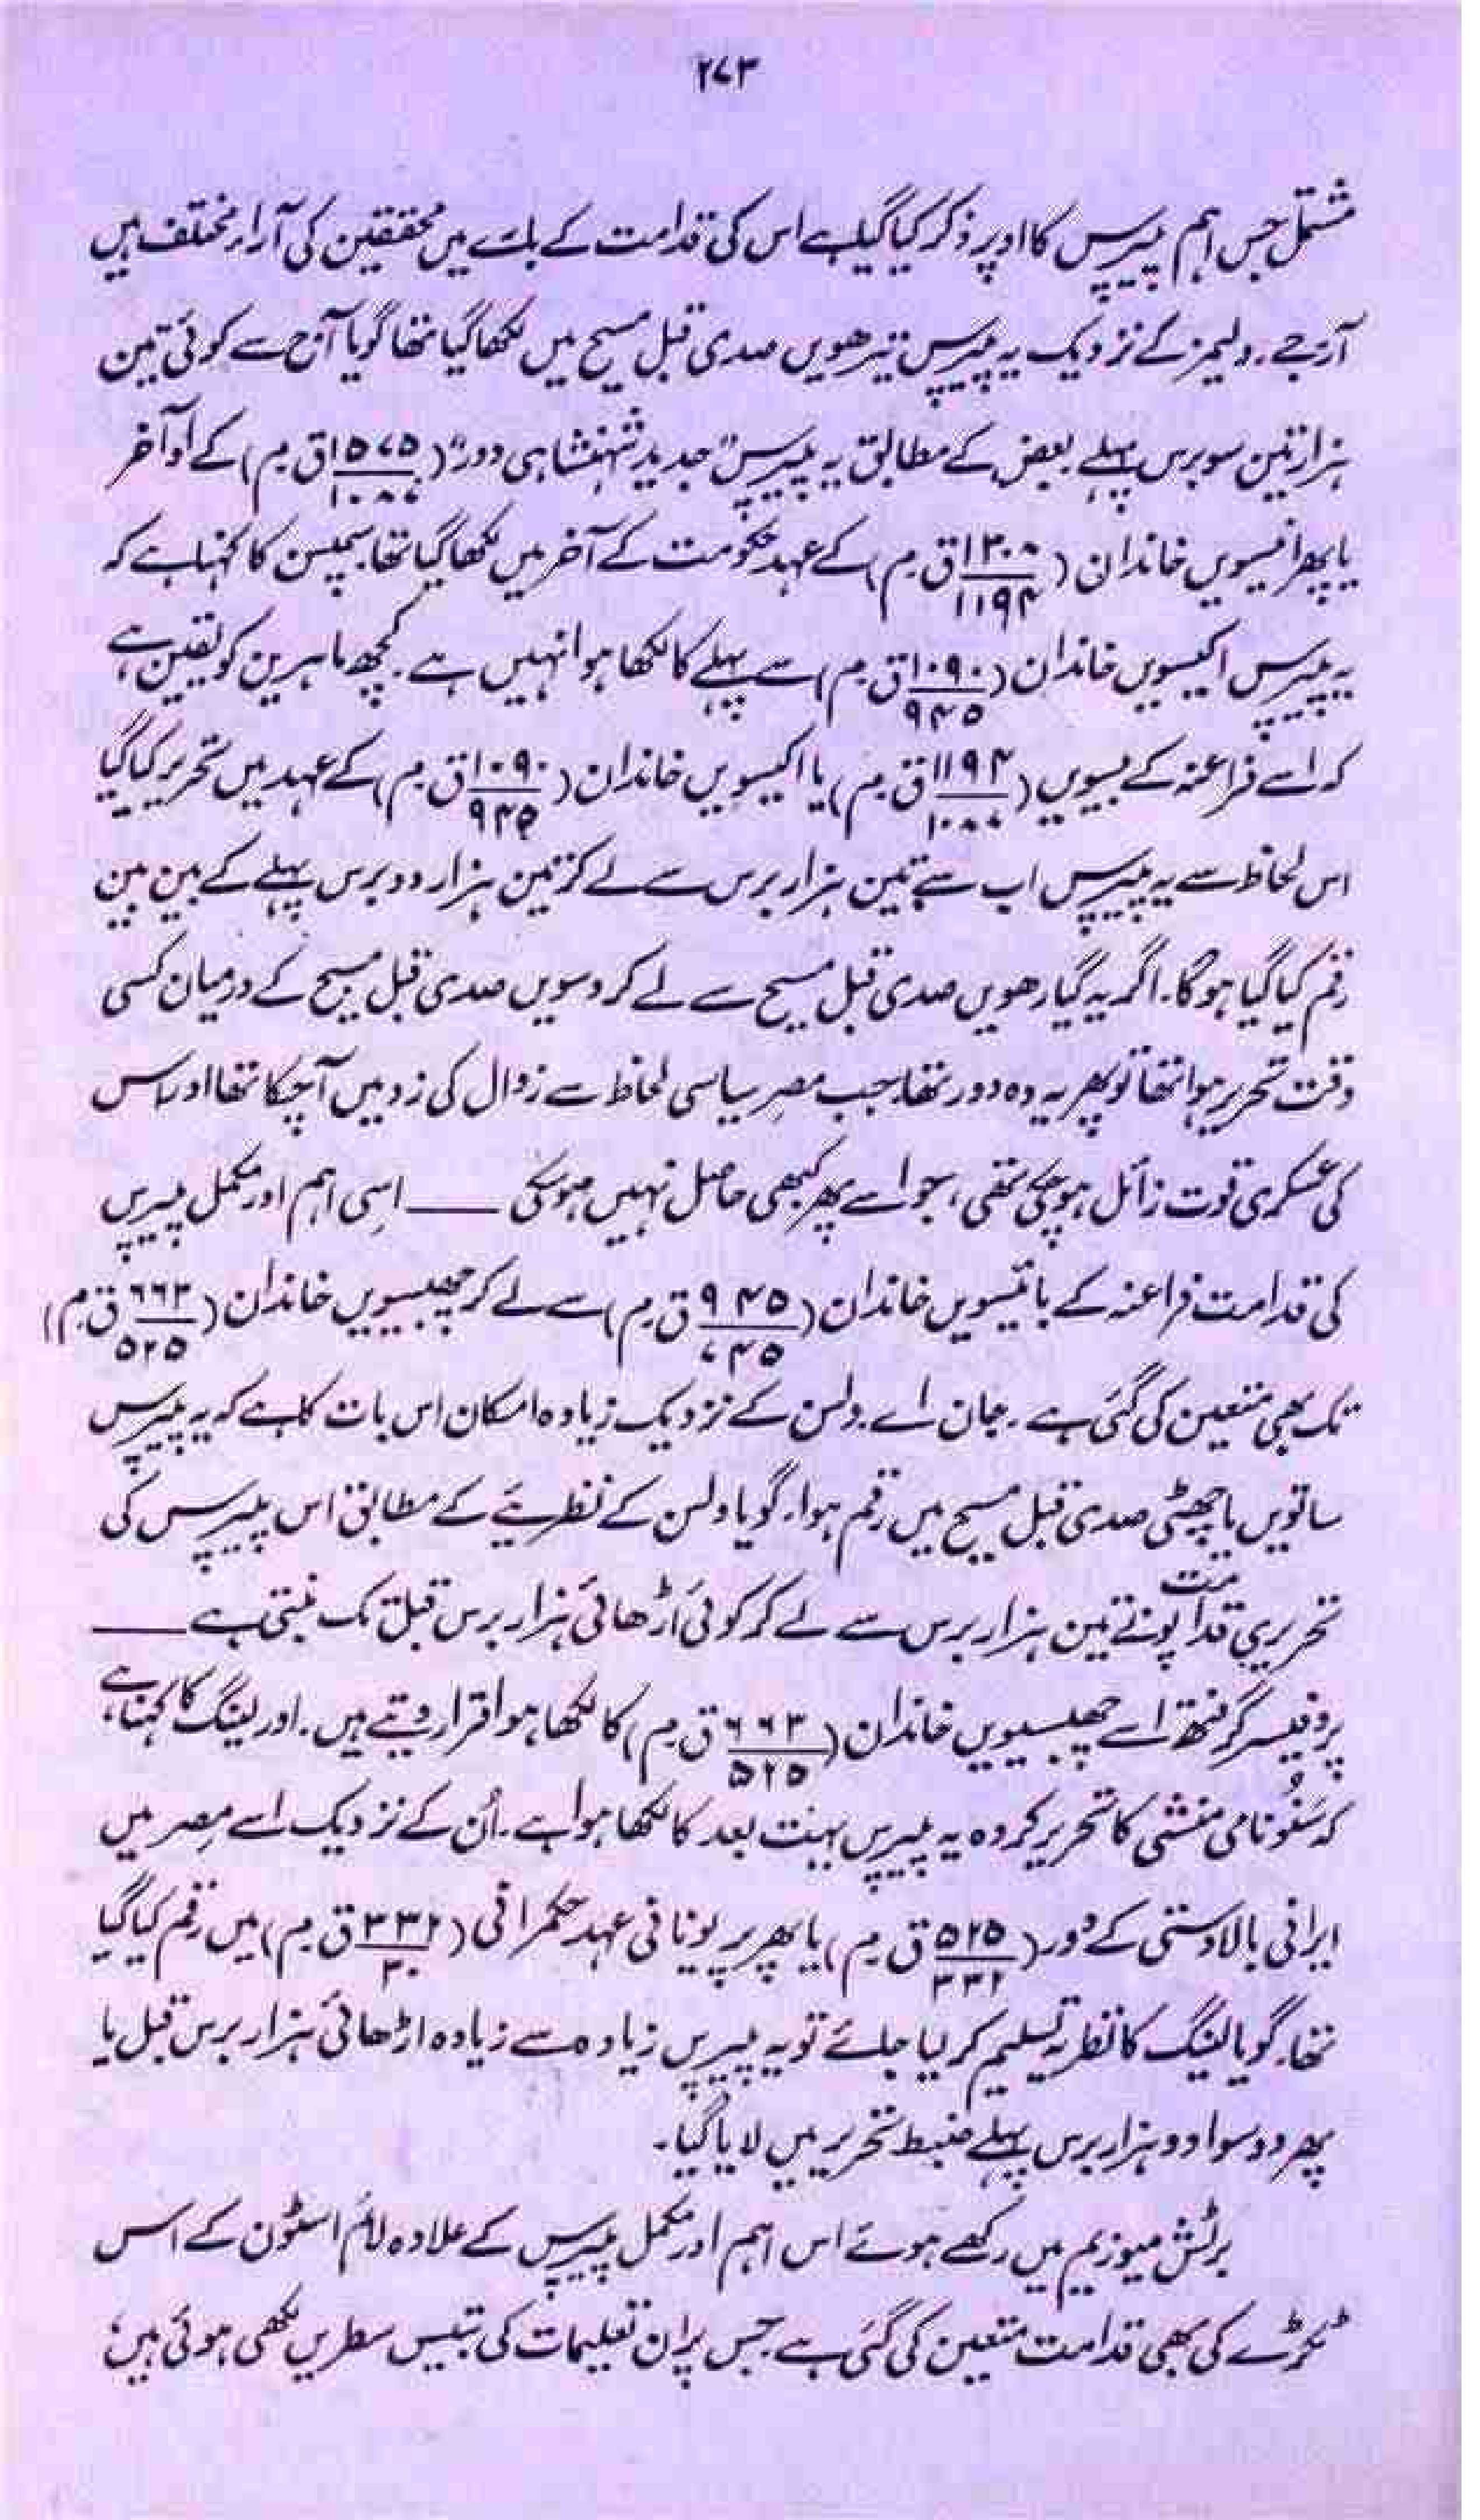 ۲۷۳
مشتمل جس اہم پیپرس کا اوپر ذکر کیا گیا ہے اس کی قدامت کے بارے میں محققین کی آراء مختلف ہیں
آر۔جے۔ ولیمز کے نزدیک یہ پیپرس تیرھویں صدی قبل مسیح میں لکھا گیا تھا گویا آج سے کوئی تین
ہزار تین سو برس پہلے۔ بعض کے مطابق یہ پیپرس "جدید شہنشاہی دور" (۱۵۷۵/۱۰۸۷ ق۔م) کے اواخر
یا پھر انیسویں خاندان (۱۳۰۸/۱۱۹۴ ق۔م) کے عہد حکومت کے آخر میں لکھا گیا تھا۔ سمپسن کا کہنا ہے کہ
یہ پیپرس اکیسویں خاندان (۱۰۹۰/۹۴۵ ق۔م) سے پہلے کا لکھا ہوا نہیں ہے۔ کچھ ماہرین کو یقین ہے
کہ اسے فراعنہ کے بیسویں (۱۱۹۴/۱۰۸۷ ق۔م) یا اکیسویں خاندان (۱۰۹۰/۹۴۵ ق۔م) کے عہد میں تحریر کیا گیا
اس لحاظ سے یہ پیپرس اب سے تین ہزار برس سے لے کر تین ہزار دو برس پہلے کے بین بین
رقم کیا گیا ہوگا۔ اگر یہ گیارھویں صدی قبل مسیح سے لے کر دسویں صدی قبل مسیح کے درمیان کسی
وقت تحریر ہوا تھا تو پھر یہ وہ دور تھا جب مصر سیاسی لحاظ سے زوال کی زد میں آچکا تھا اور اس
کی عسکری قوت زائل ہو چکی تھی، جو اسے پھر کبھی حاصل نہیں ہوسکی —— اسی اہم اور مکمل پیپرس
کی قدامت فراعنہ کے بائیسویں خاندان (۹۴۵/۷۴۵ ق۔م) سے لے کر چھبیسویں خاندان (۶۶۳/۵۲۵ ق۔م)
تک بھی متعین کی گئی ہے۔ جان اے۔ ولسن کے نزدیک زیادہ امکان اس بات کا ہے کہ یہ پیپرس
ساتویں یا چھٹی صدی قبل مسیح میں رقم ہوا۔ گویا ولسن کے نظریئے کے مطابق اس پیپرس کی
تحریری قدامت پونے تین ہزار برس سے لے کر کوئی اڑھائی ہزار برس قبل تک بنتی ہے ——
پروفیسر گرفتھ اسے چھبیسویں خاندان (۶۶۳/۵۲۵ ق۔م) کا لکھا ہوا قرار دیتے ہیں۔ اور لینگ کا کہنا ہے
کہ سَنُو نامی منشی کا تحریر کردہ یہ پیپرس بہت بعد کا لکھا ہوا ہے۔ اُن کے نزدیک اسے مصر میں
ایرانی بالادستی کے دَور (۵۲۵/۳۳۲ ق۔م) یا پھر یونانی عہد حکمرانی (۳۳۲/۳۰ ق۔م) میں رقم کیا گیا
تھا۔ گویا لینگ کا نظریہ تسلیم کر لیا جائے تو یہ پیپرس زیادہ سے زیادہ اڑھائی ہزار برس قبل یا
پھر دو سوا دو ہزار برس پہلے ضبط تحریر میں لایا گیا۔
برٹش میوزیم میں رکھے ہوئے اس اہم اور مکمل پیپرس کے علاوہ لائم اسٹون کے اس
ٹکڑے کی بھی قدامت متعین کی گئی ہے جس پر ان تعلیمات کی تیئیس سطریں لکھی ہوئی ہیں؛